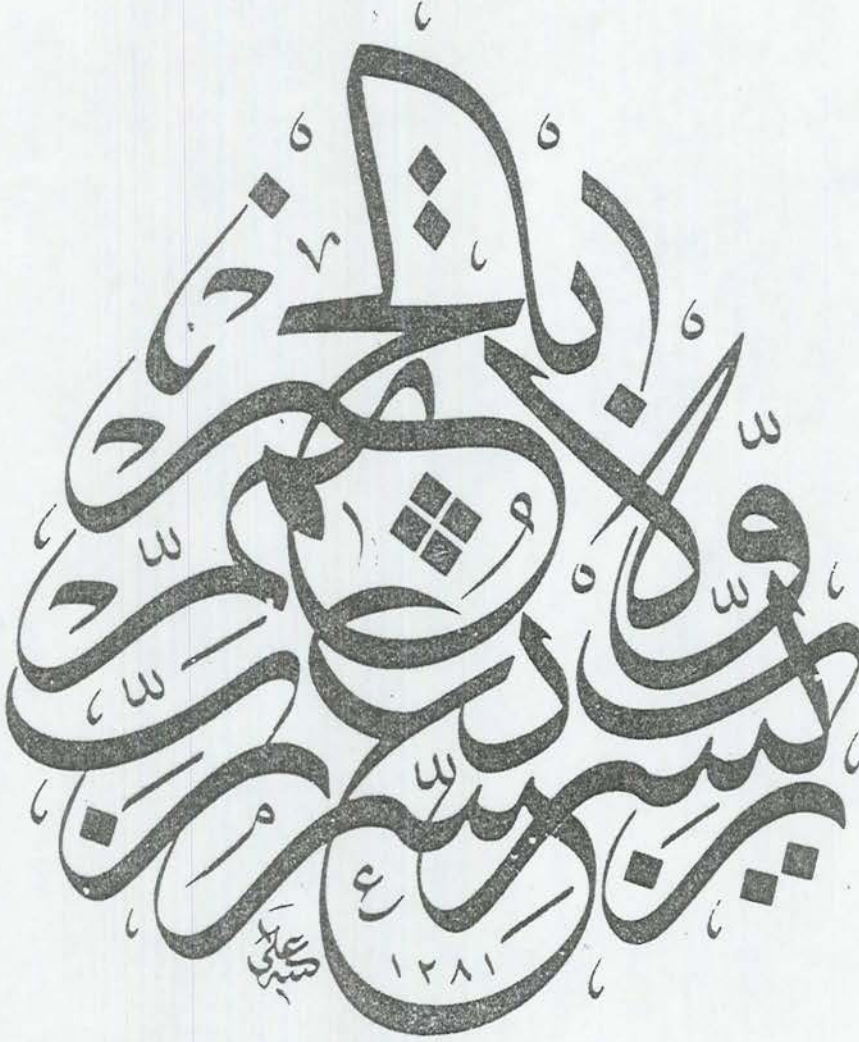 رَبِّ يَسِّرْ وَلَا تُعَسِّرْ رَبِّ تَمِّمْ بِالْخَيْرِ
١٢٨١